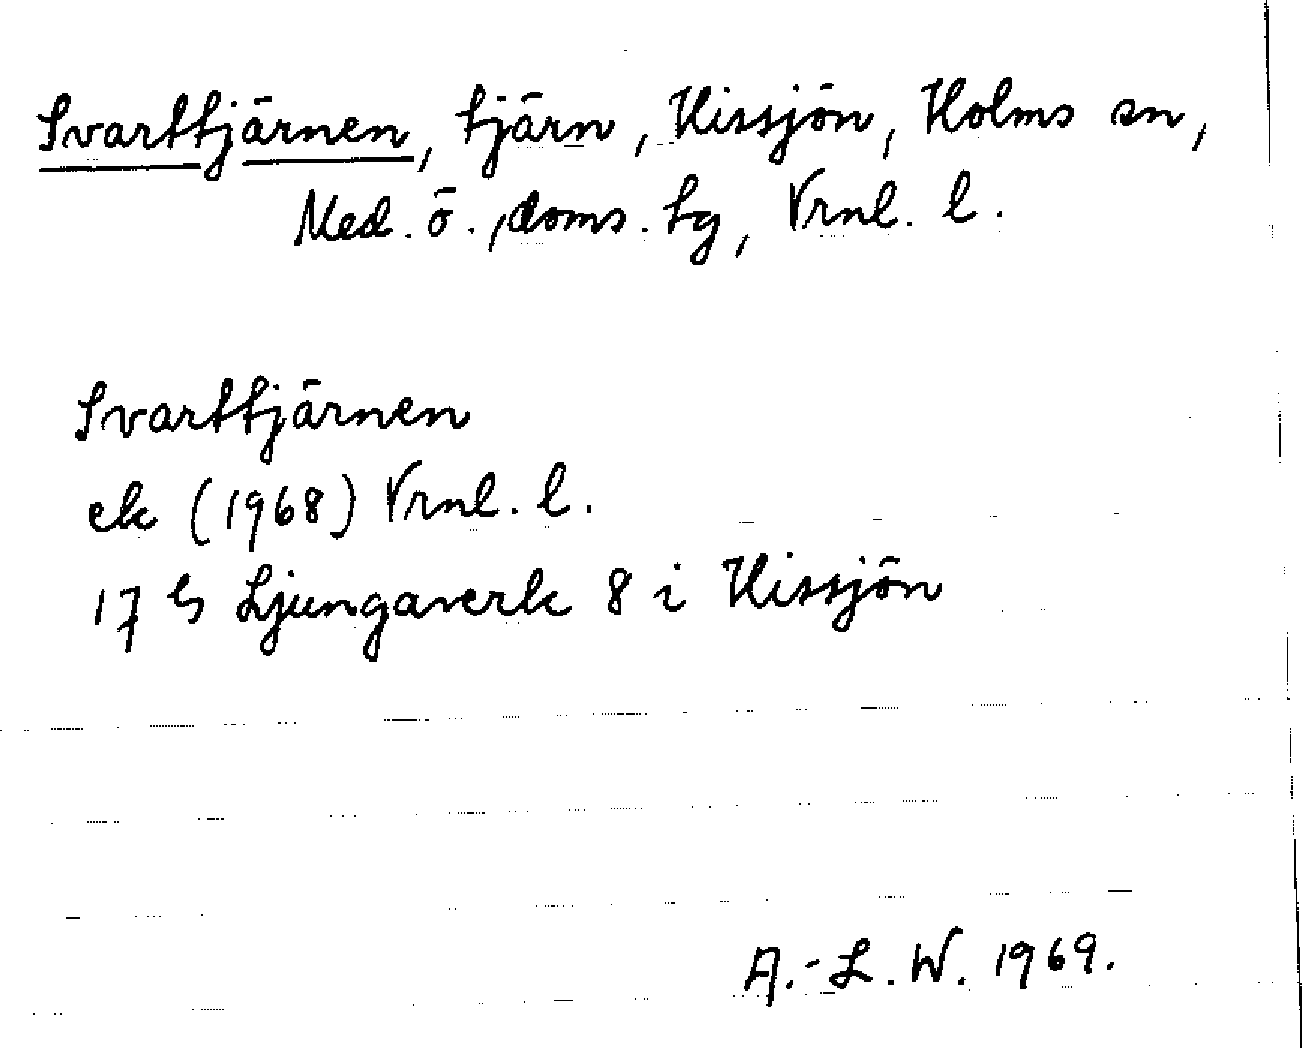 Svarttjärnen, tjärn, Hissjön, Holms sn,
Med. ö., doms. tg, Vrnl. l.
Svarttjärnen
ek (1968) Vrnl. l.
17 G Ljungaverk 8 i Hissjön
A.-L. W. 1969.